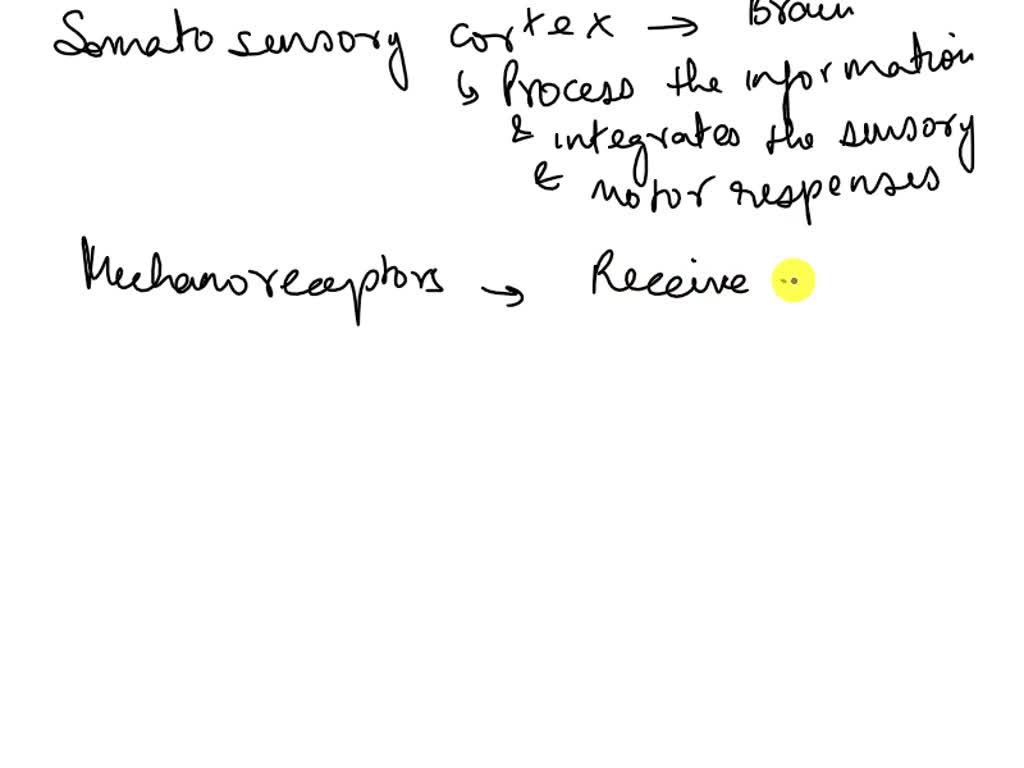 Somato sensory cortex → Brain
↳ Process the information
& integrates the sensory
& motor responses
Mechanoreceptors → Receive